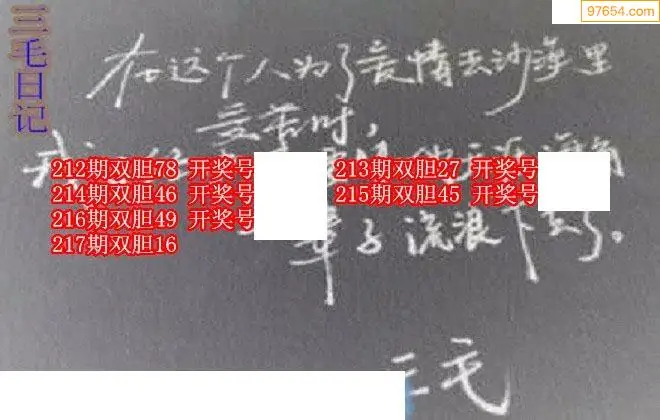 97654.com
三毛日记
在这个人为了爱情去沙漠里
受苦时，
212期双胆78 开奖号
213期双胆27 开奖号
214期双胆46 开奖号
215期双胆45 开奖号
216期双胆49 开奖号
217期双胆16
辈子流浪下去了。
三毛